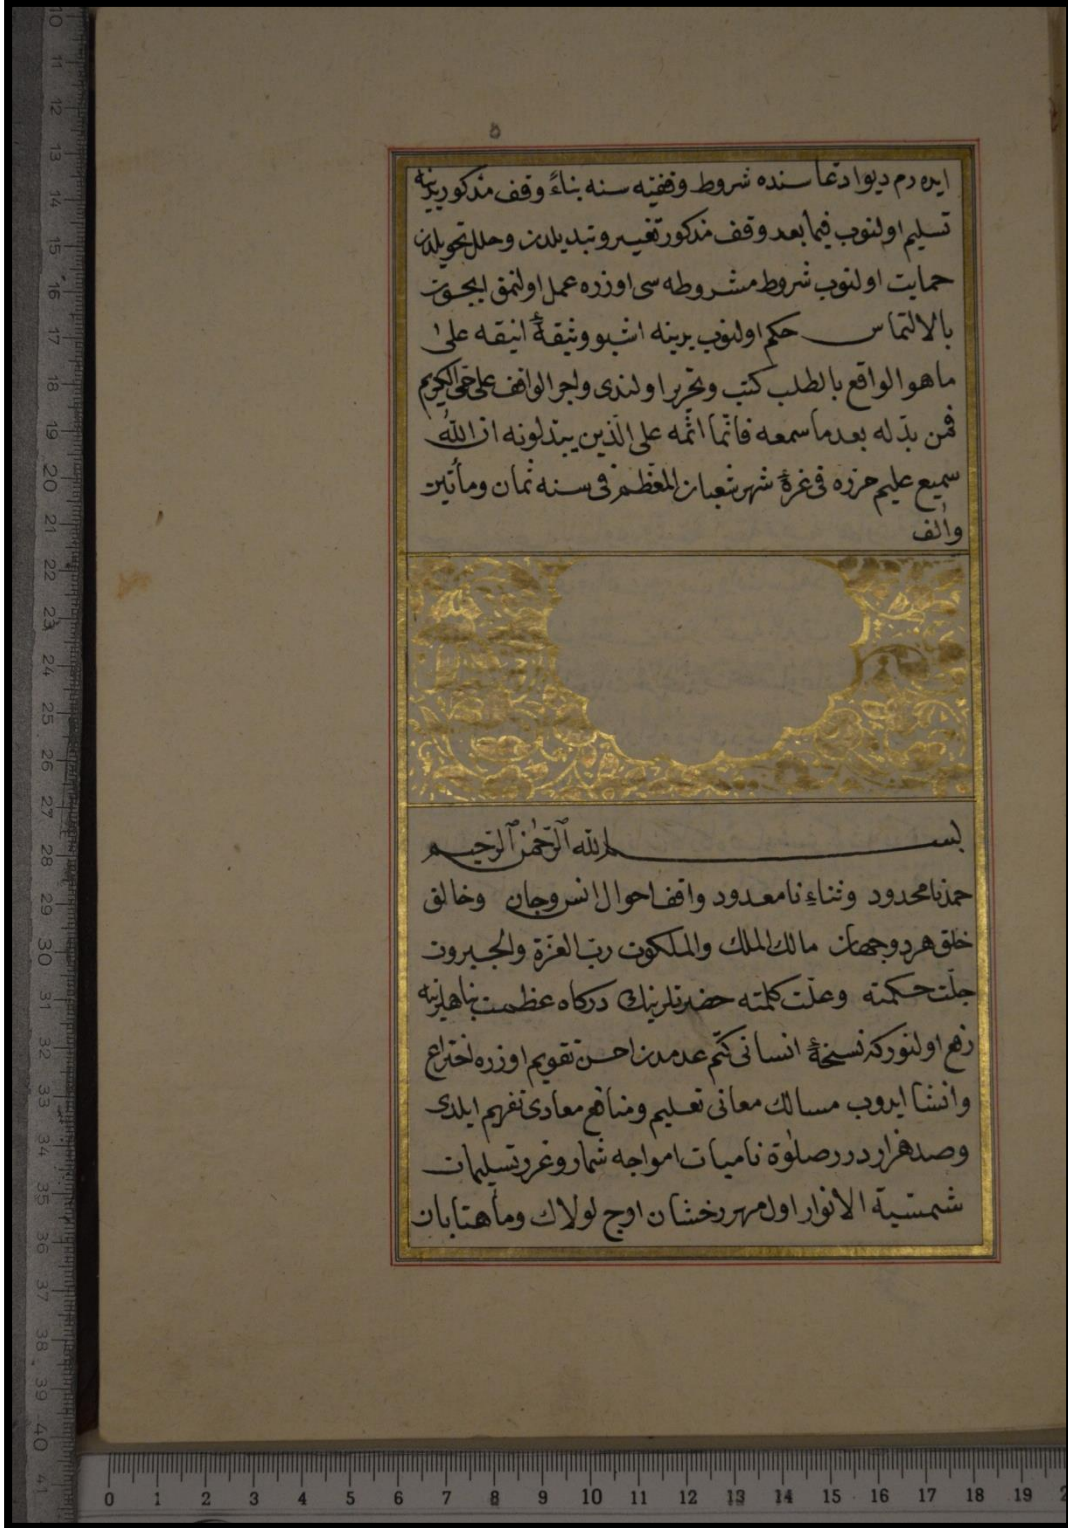 ايده رم ديو ادعا سنده شروط وقفيه سنه بناءً وقف مذكور يرينه
تسليم اولنوب فيما بعد وقف مذكور تغيير و تبديلدن وخلل تحويلدن
حمايت اولنوب شروط مشروطه سى اوزره عمل اولنمق ايجون
بالالتماس حكم اولنوب يرينه اشبو وثيقهٔ انيقه على
ما هو الواقع بالطلب كتب وتحرير اولندى واجر الواقف على حى الكريم
فمن بدّله بعد ما سمعه فانّما اثمه على الذين يبدّلونه ان الله
سميع عليم حرره فى غرهٔ شهر شعبان المعظم فى سنه ثمان ومأتين
وألف
بسم الله الرحمن الرحيم
حمد نامحدود وثناء نامعدود واقف احوال انس وجان وخالق
خلق هر دو جهان مالك الملك والملكوت ربّ العزّة والجبروت
جلّت حكمته وعلت كلمته حضرتلرينك دركاه عظمت پناهلرينه
رفع اولنور كه نسخهٔ انسانى كتم عدمدن احسن تقويم اوزره اختراع
وانشا ايدوب مسالك معانى تعليم ومناهج معادى تفهيم ايلدى
وصد هزار درر صلوٰة ناميات امواجه شمار وغرر تسليمات
شمسية الانوار اول مهر رخشان اوج لولاك وماه تابان